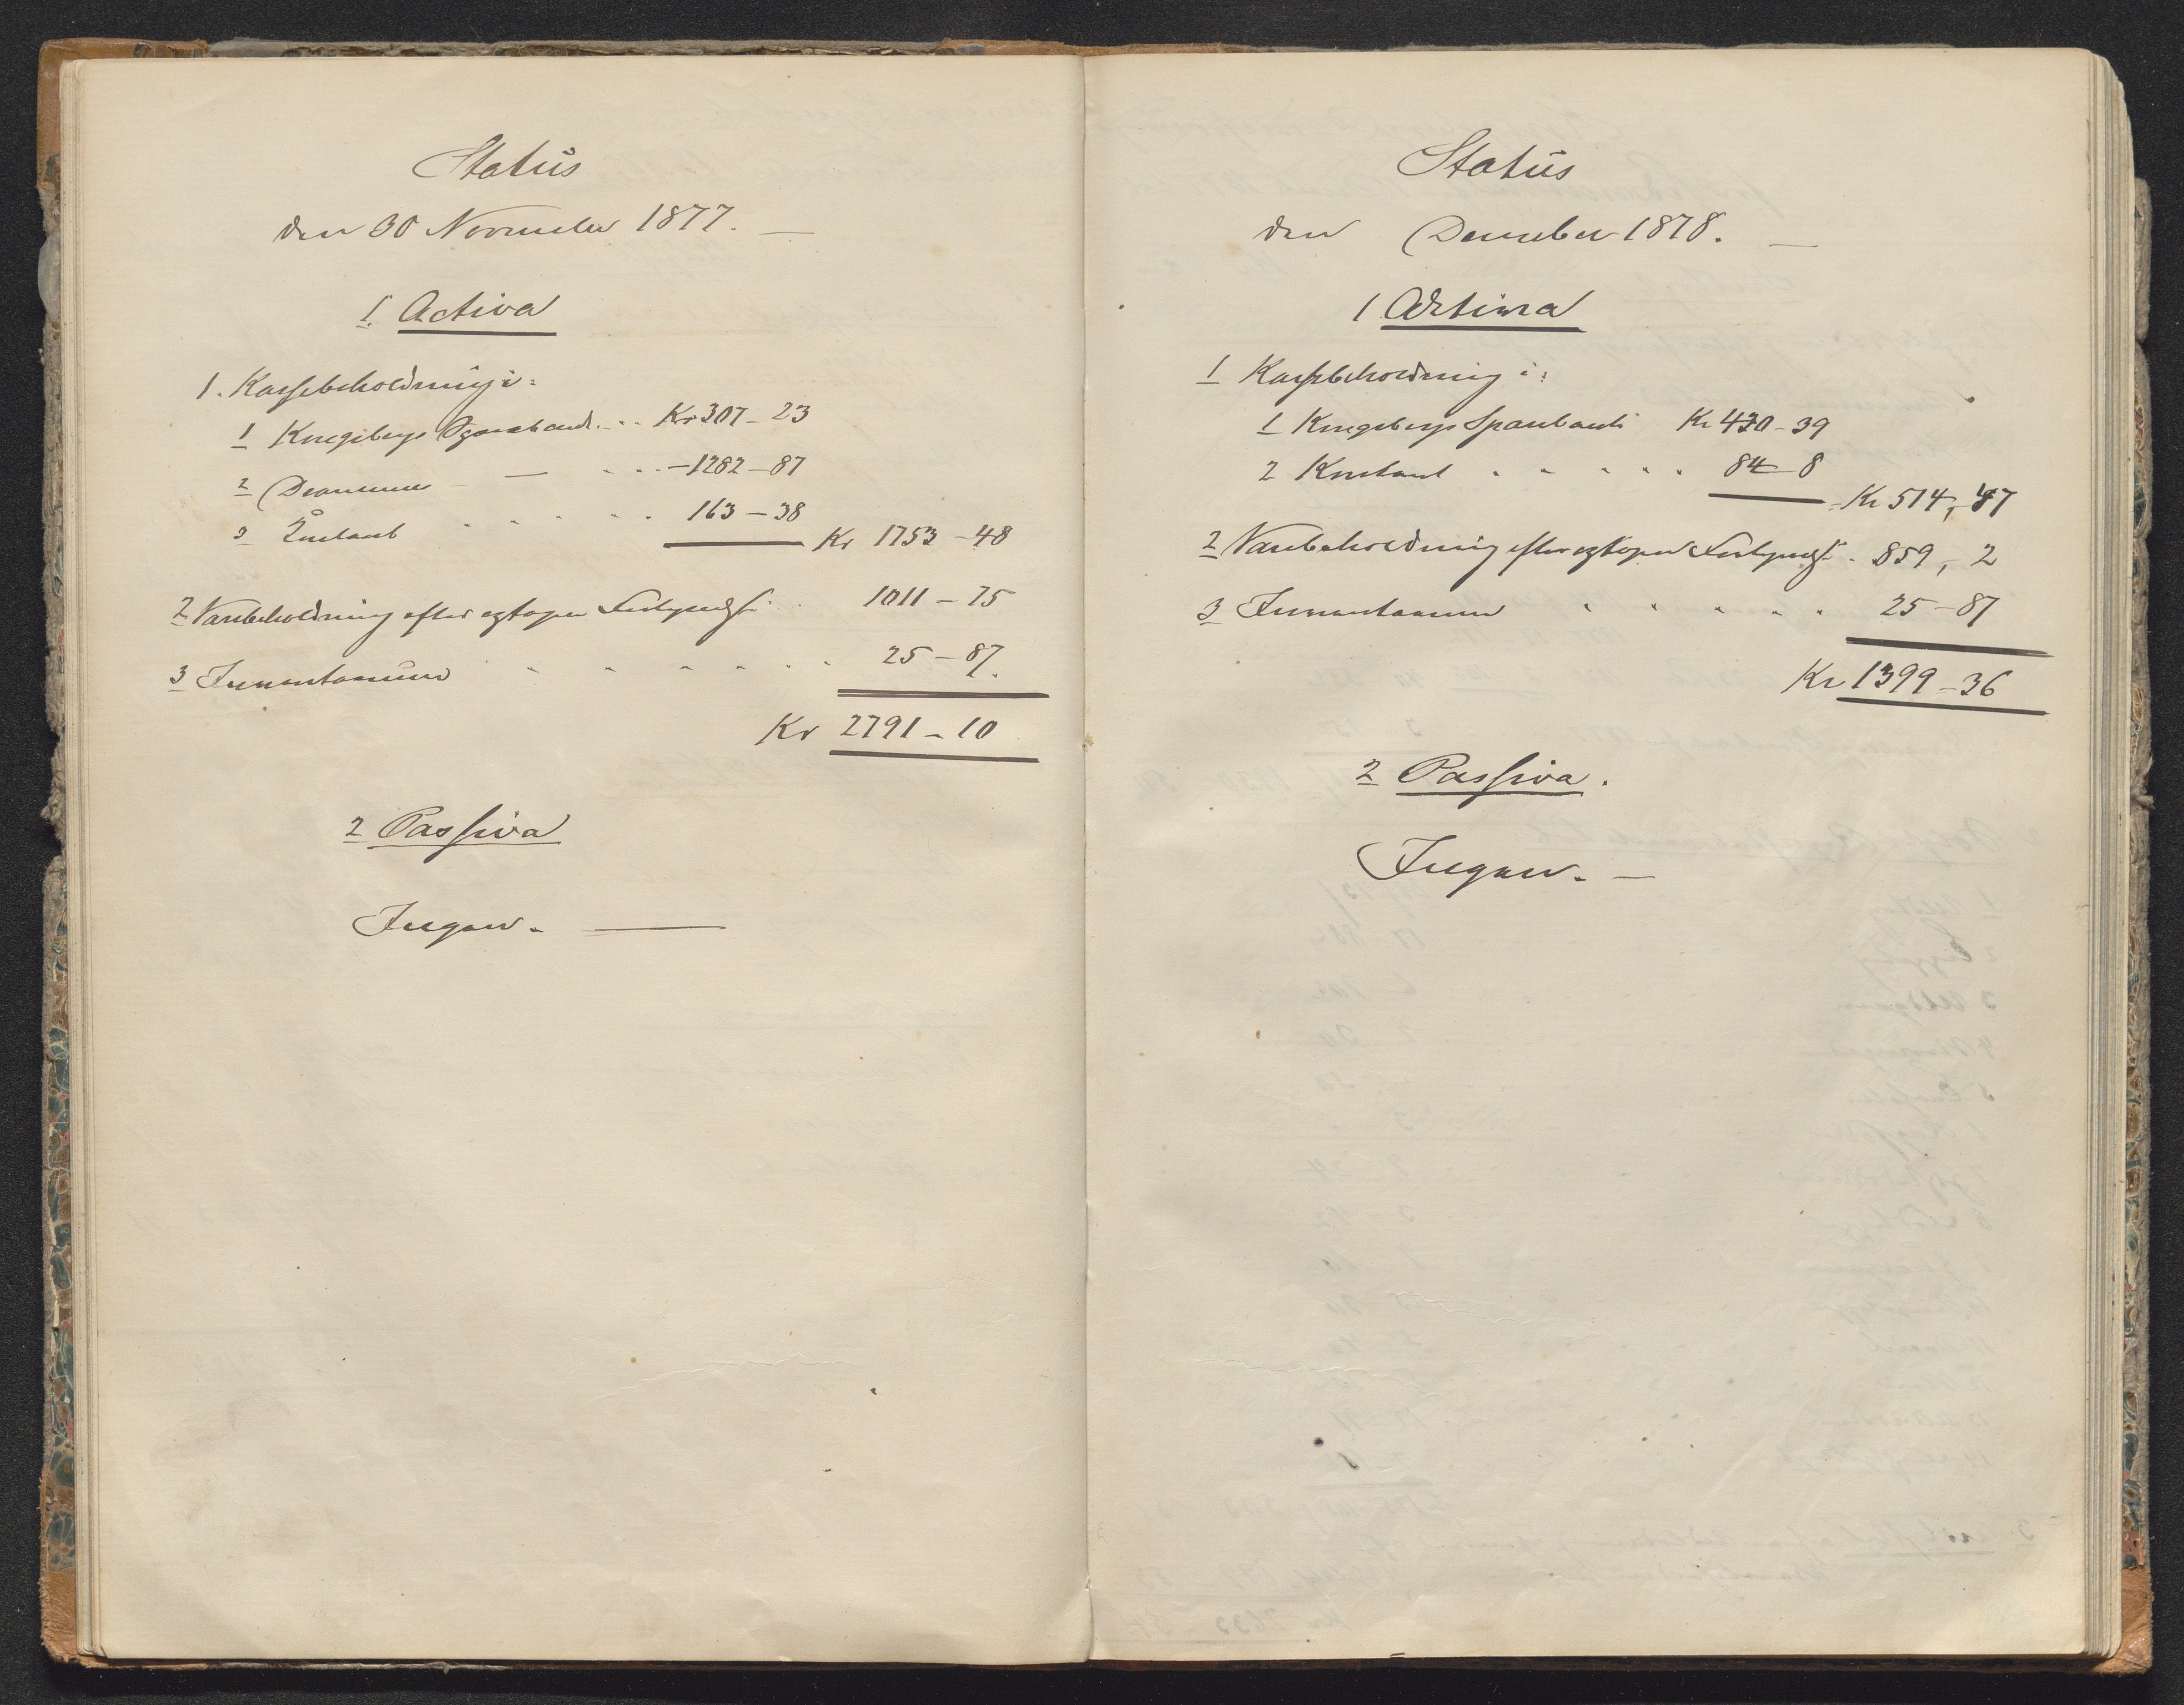 Status
den 30 November 1877. —
1. Activa
1. Kassebeholdning i:
1 Kongsbergs Sparebank . . Kr 307 - 23
2 Drammens — . . . - 1282 - 87
3 Kontant . . . . . 163 - 38 Kr 1753 - 48
2 Varebeholdning efter optagen Fortegnelse . . 1011 - 75
3 Inventarium . . . . . . 25 - 87.
Kr 2791 - 10
2 Passiva
Ingen. —
Status
den December 1878. —
1 Activa
1 Kassebeholdning i:
1 Kongsbergs Sparebank Kr 430 - 39
2 Kontant . . . . . 84 - 8 - Kr 514, 47
2 Varebeholdning efter optagen Fortegnelse . 859, 2
3 Inventarium . . . . . 25 - 87
Kr 1399 - 36
2 Passiva.
Ingen. —